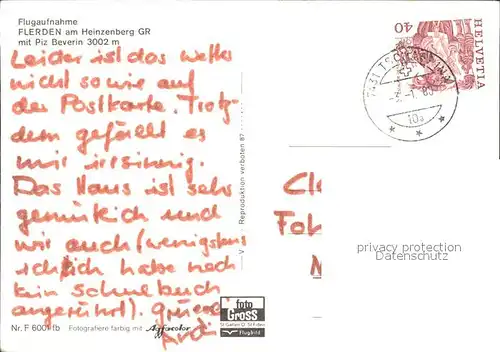 Flugaufnahme
FLERDEN am Heinzenberg GR
mit Piz Beverin 3002 m
Leider ist das wetter
nicht so wie auf
der Postkarte. Trotz
dem gefällt es
mir irrsinnig.
Das Haus ist sehr
gemütlich und
wir auch (wenigstens
ich). Ich habe noch
kein Schulbuch
angerührt). 
Nr. F 6001 fb Fotografiere farbig mit Agfacolor
V - Reproduktion verboten 87
foto
Gross
St Gallen
Flugbild
40
HELVETIA
7431
10a
privacy protection
Datenschutz